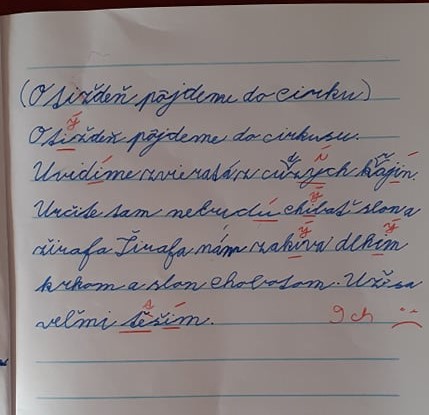 (O tiždeň pôjdeme do cirku)
O tiždeň pôjdeme do cirkusu.
Uvidíme zvieratá z cudzých krajín.
Určite tam nebudú chíbať slon a
žirafa. Žirafa nám zakíva dlhím
krkom a slon chobotom. Už sa
veľmi těším.
9 ch